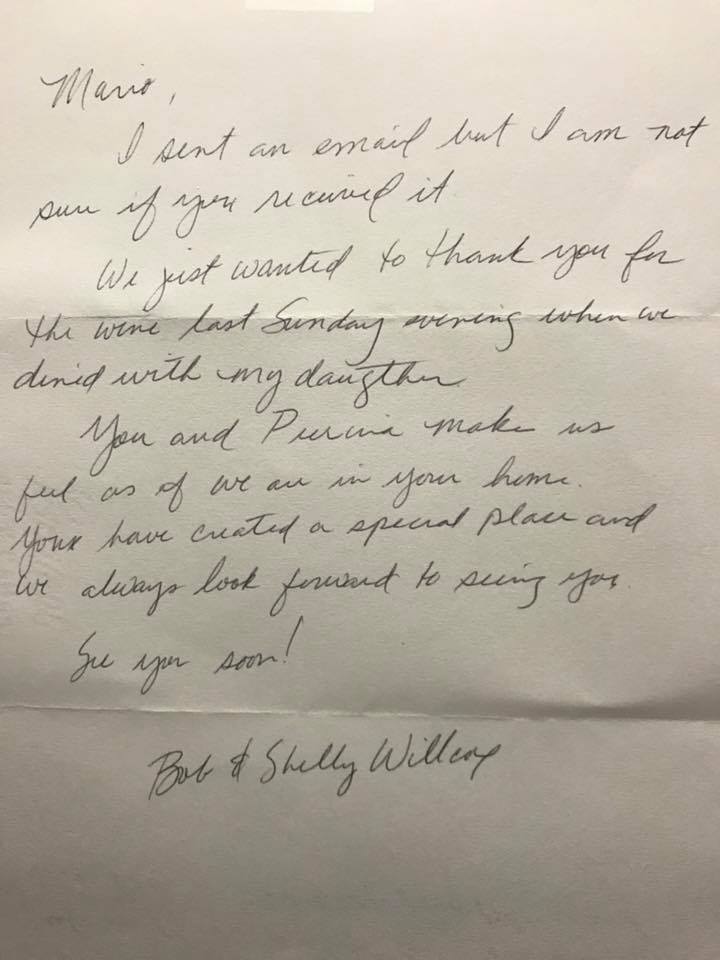 Mario,
I sent an email but I am not
sure if you received it.
We just wanted to thank you for
the wine last Sunday evening when we
dined with my daugther.
You and make us
feel as if we are in your home.
You have created a special place and
we always look forward to seeing you.
See you soon!
Bob & Shelly Willcox